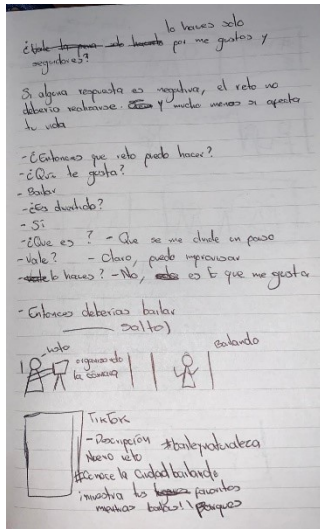 lo haces solo
por me gustas y
seguidores?
Si alguna respuesta es negativa, el reto no
deberia realizarse. y mucho menos si afecta
tu vida
-¿Entonces que reto puedo hacer?
-¿Que te gusta?
- Bailar
-¿Es divertido?
- Si
-¿Que es ? - Que se me olvide un paso
- Vale? - Claro, puedo improvisar
lo haces? - No, es que me gusta
- Entonces deberias bailar
salto)
organizando
la cámara
Bailando
TikTok
- Descripción #baileynaturaleza
Nuevo reto
#Conoce la Ciudad bailando
¡muestra tus favoritos
mientras bailas!! parques